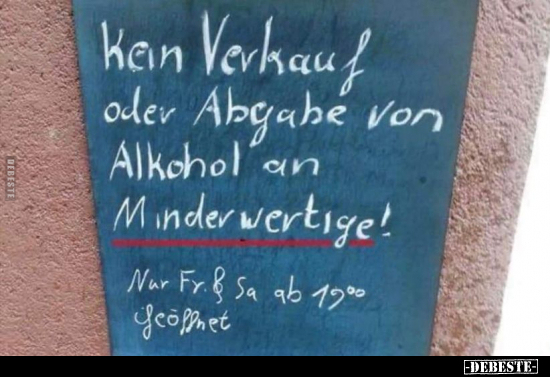 Kein Verkauf
oder Abgabe von
Alkohol an
Minderwertige!
Nur Fr. & Sa ab 19⁰⁰
geöffnet
DEBESTE
-DEBESTE-